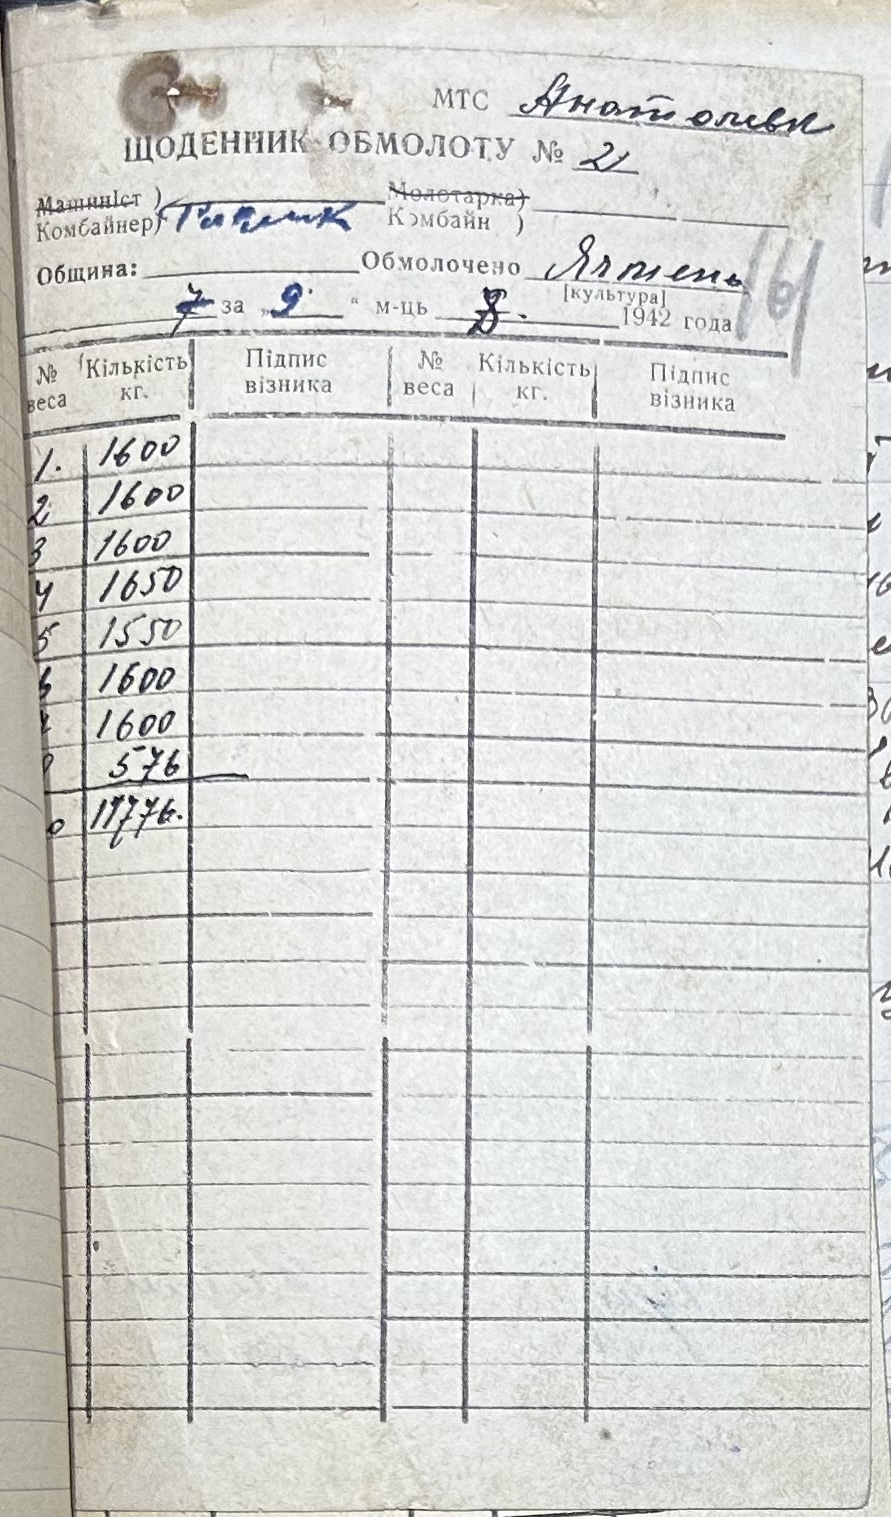 МТС Анатолівк
ЩОДЕННИК ОБМОЛОТУ № 21
Машиніст )
Комбайнер)
Молотарка)
Комбайн )
Община: Обмолочено Ячмень
[культура]
7 за „9“ м-ць 8. 1942 года
161
№ веса Кількість кг. Підпис візника № веса Кількість кг. Підпис візника
1. 1600
2 1600
3 1600
4 1650
5 1550
6 1600
1600
576
11776.